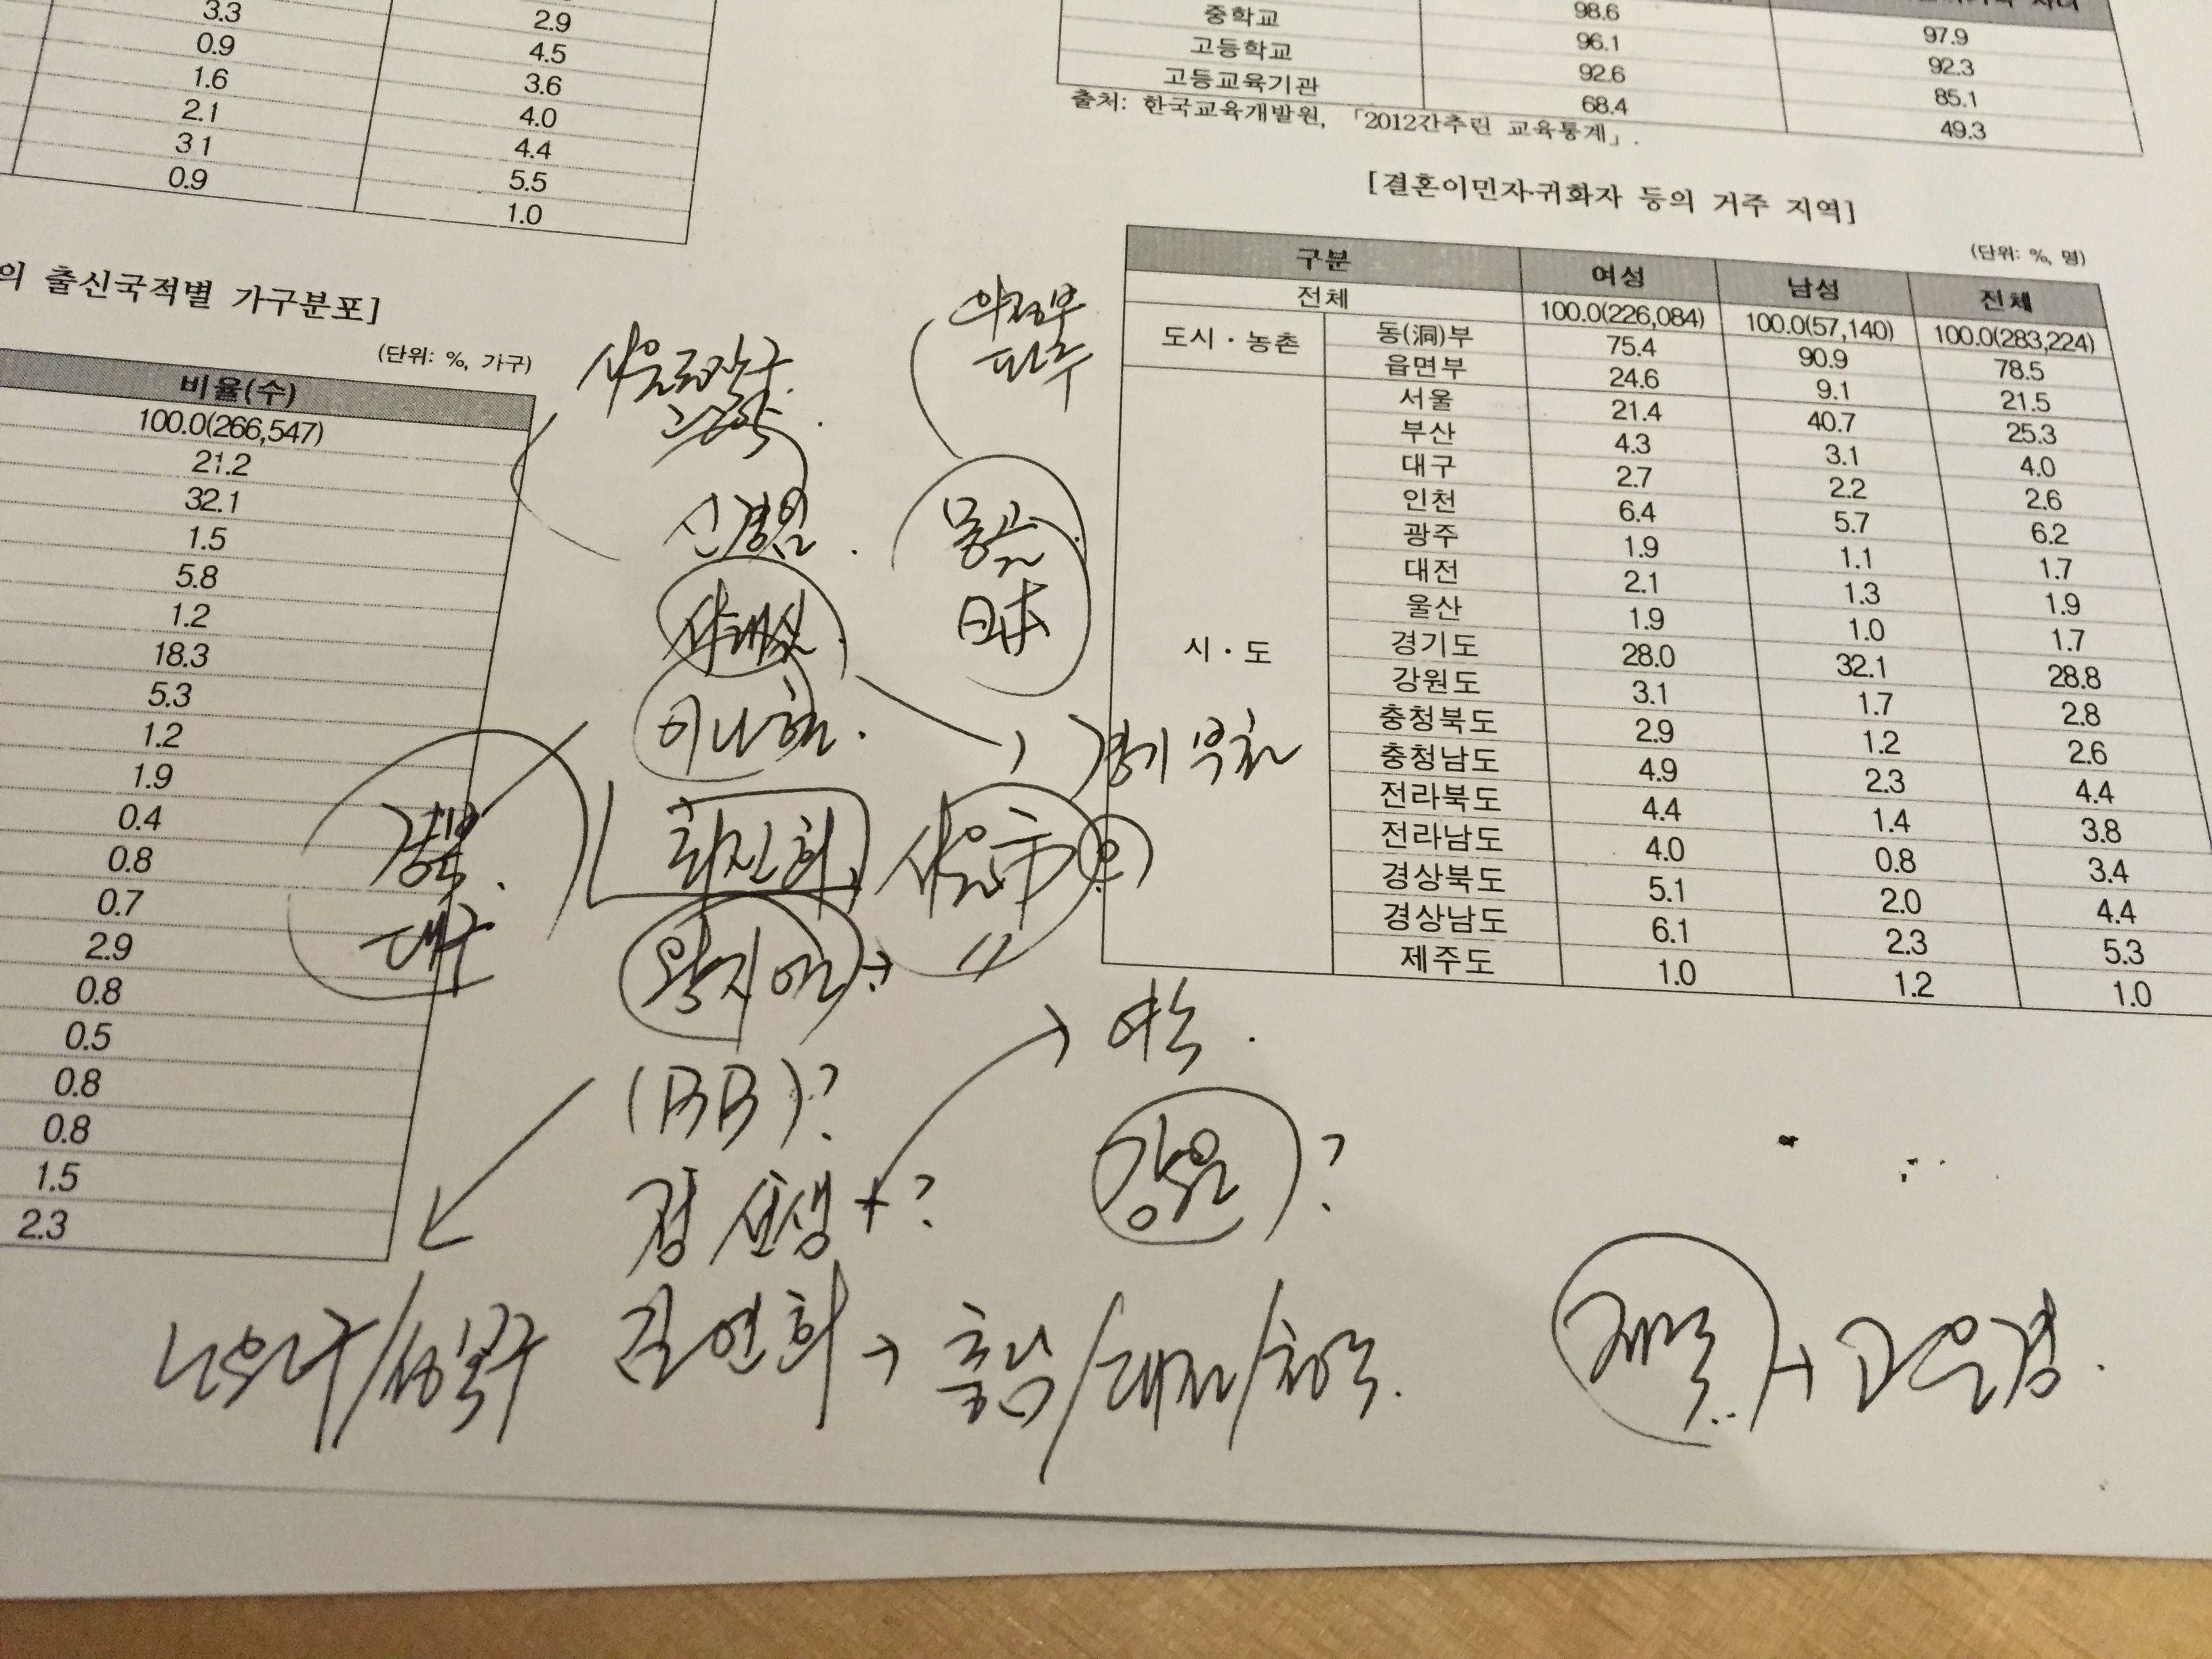 3.3 2.9
0.9 4.5
1.6 3.6
2.1 4.0
3.1 4.4
0.9 5.5
1.0
중학교 98.6 97.9
고등학교 96.1 92.3
고등교육기관 92.6 85.1
68.4 49.3
출처: 한국교육개발원, 「2012간추린 교육통계」.
의 출신국적별 가구분포]
(단위: %, 가구)
비율(수)
100.0(266,547)
21.2
32.1
1.5
5.8
1.2
18.3
5.3
1.2
1.9
0.4
0.8
0.7
2.9
0.8
0.5
0.8
0.8
1.5
2.3
[결혼이민자·귀화자 등의 거주 지역]
(단위: %, 명)
구분 여성 남성 전체
전체 100.0(226,084) 100.0(57,140) 100.0(283,224)
도시·농촌 동(洞)부 75.4 90.9 78.5
읍면부 24.6 9.1 21.5
시·도 서울 21.4 40.7 25.3
부산 4.3 3.1 4.0
대구 2.7 2.2 2.6
인천 6.4 5.7 6.2
광주 1.9 1.1 1.7
대전 2.1 1.3 1.9
울산 1.9 1.0 1.7
경기도 28.0 32.1 28.8
강원도 3.1 1.7 2.8
충청북도 2.9 1.2 2.6
충청남도 4.9 2.3 4.4
전라북도 4.4 1.4 3.8
전라남도 4.0 0.8 3.4
경상북도 5.1 2.0 4.4
경상남도 6.1 2.3 5.3
제주도 1.0 1.2 1.0
파주
몽골
日本
이나현.
경기 부천
경북.
대구
최진희
왕지연 →
(BB)?
여수.
정 선생 + ?
강원 ?
노원구/성북구
김연희 → 충남/대전/청주.
제주 → 고은경.